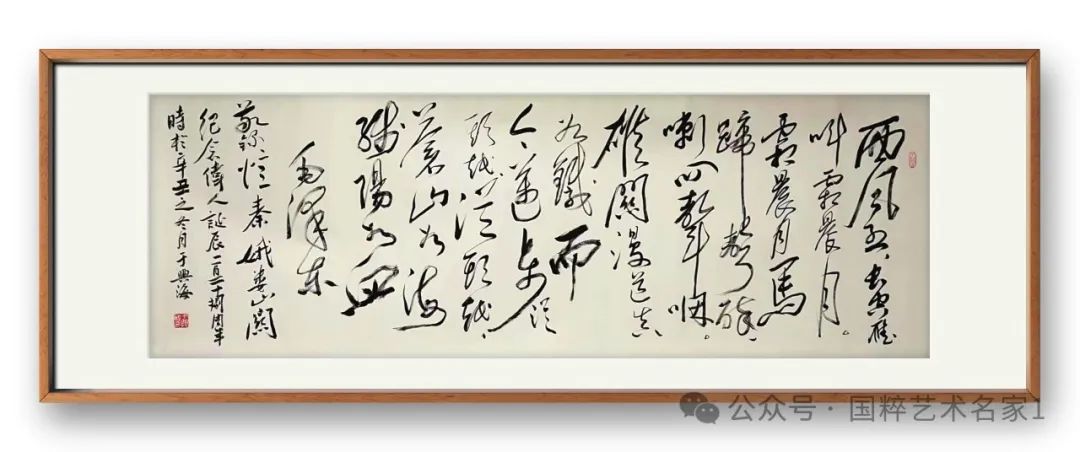 西風烈、長空雁
叫霜晨月。
霜晨月馬
蹄聲碎、
喇叭聲咽。
雄關漫道真
如鐵而
今邁步從
頭越從頭越、
蒼山如海
殘陽如血
毛澤東
敬錄憶秦娥婁山關
紀念偉人誕辰一百二十捌周年
時於辛丑之冬月于興海
公众号·国粹艺术名家1